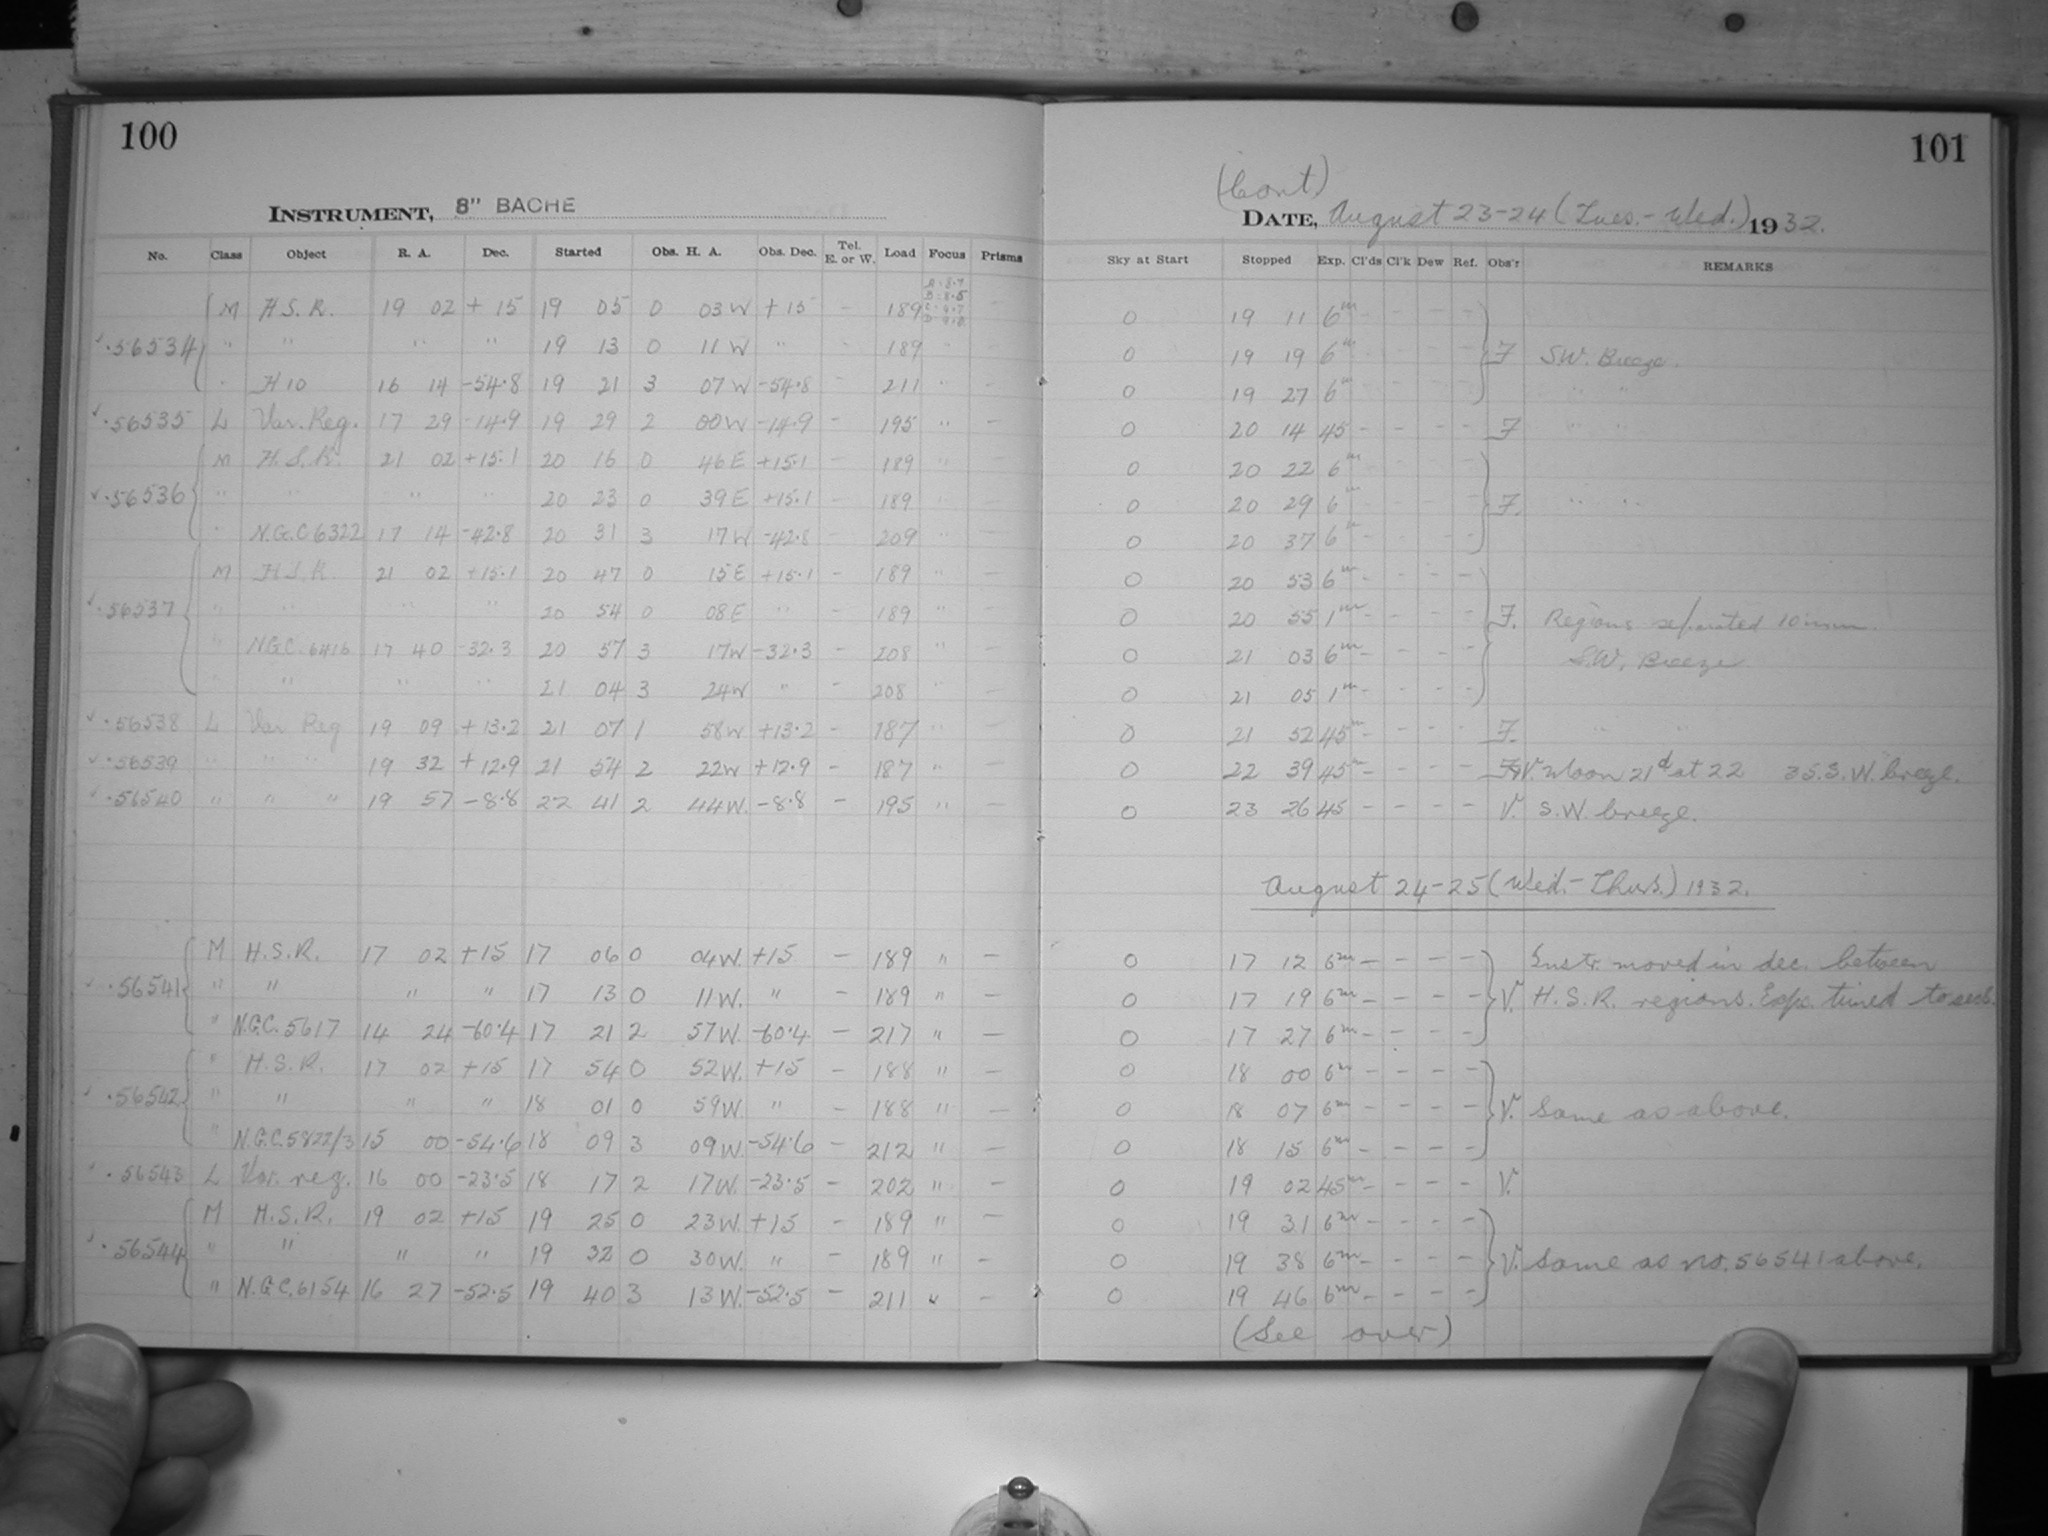 100
INSTRUMENT, 8" BACHE
No. Class Object R. A. Dec. Started Obs. H. A. Obs. Dec. Tel. E. or W. Load Focus Prisms
M H.S.R. 19 02 + 15 19 05 0 03 W + 15 - 189 -
56534 " " " " 19 13 0 11 W " - 189
H 10 16 14 -54.8 19 21 3 07 W -54.8 - 211 " -
56535 L Var. Reg. 17 29 -14.9 19 29 2 00 W -14.9 - 195 " -
M H.S.R. 21 02 +15.1 20 16 0 46 E +15.1 - 189 " -
56536 " " " " 20 23 0 39 E +15.1 - 189 " -
" N.G.C 6322 17 14 -42.8 20 31 3 17 W -42.8 - 209 " -
M H.S.R. 21 02 +15.1 20 47 0 15 E +15.1 - 189 " -
56537 " " " " 20 54 0 08 E " - 189 " -
" N.G.C. 6416 17 40 -32.3 20 57 3 17 W -32.3 - 208 " -
" " " " 21 04 3 24 W " - 208 " -
56538 L Var Reg 19 09 + 13.2 21 07 1 58 W +13.2 - 187 " -
56539 " " " 19 32 + 12.9 21 54 2 22 W +12.9 - 187 " -
56540 " " " 19 57 -8.8 22 41 2 44 W. -8.8 - 195 " -
M H.S.R. 17 02 +15 17 06 0 04 W. +15 - 189 " -
56541 " " " " 17 13 0 11 W. " - 189 " -
" N.G.C. 5617 14 24 -60.4 17 21 2 57 W. -60.4 - 217 " -
" H.S.R. 17 02 +15 17 54 0 52 W. +15 - 188 " -
56542 " " " " 18 01 0 59 W. " - 188 " -
" N.G.C. 5822/3 15 00 -54.6 18 09 3 09 W. -54.6 - 212 " -
56543 L Var. reg. 16 00 -23.5 18 17 2 17 W. -23.5 - 202 " -
M H.S.R. 19 02 +15 19 25 0 23 W. +15 - 189 " -
56544 " " " " 19 32 0 30 W. " - 189 " -
" N.G.C. 6154 16 27 -52.5 19 40 3 13 W. -52.5 - 211 " -
101
(Cont)
DATE, August 23-24 (Tues.- Wed.) 1932.
Sky at Start Stopped Exp. Cl'ds Cl'k Dew Ref. Obs'r REMARKS
0 19 11 6m - - - -
0 19 19 6m - - - - F SW. Breeze.
0 19 27 6m - - - - " "
0 20 14 45 - - - - F " "
0 20 22 6m - - - -
0 20 29 6m - - - - F. " "
0 20 37 6m - - - -
0 20 53 6m - - - -
0 20 55 1m - - - - F. Regions separated 10 mm.
0 21 03 6m - - - - S.W. Breeze
0 21 05 1m - - - -
0 21 52 45m - - - - F. " "
0 22 39 45m - - - - F&V. Moon 21d at 22 35. S.W. breeze.
0 23 26 45 - - - - V. S.W. breeze.
August 24-25 (Wed.- Thurs.) 1932.
0 17 12 6m - - - - Instr. moved in dec. between
0 17 19 6m - - - - V. H.S.R. regions. Exps. timed to secs.
0 17 27 6m - - - -
0 18 00 6m - - - -
0 18 07 6m - - - - V. Same as above.
0 18 15 6m - - - -
0 19 02 45m - - - - V.
0 19 31 6m - - - -
0 19 38 6m - - - - V. Same as no. 56541 above.
0 19 46 6m - - - -
(See over)